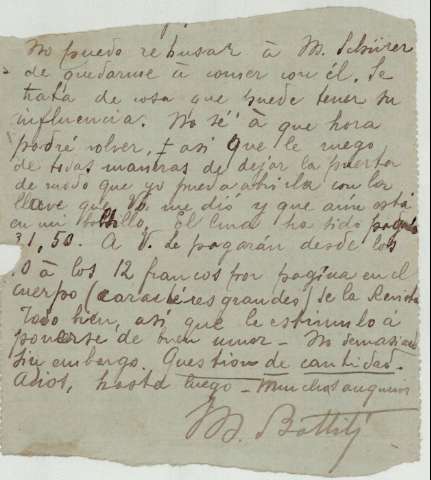 No puedo rehusar à M. Schürer
de quedarme à comer con él. Se
trata de cosa que puede tener su
influencia. No sé à que hora
podré volver, + asi que le ruego
de todas maneras de dejar la puerta
de modo que yo pueda abrirla con la
llave que V. me dió y que aun está
en mi bolsillo. El ha sido pagado
31,50. A V. le pagarán desde los
0 à los 12 francos por pagina en el
cuerpo (caractéres grandes) de la Revista
Todo bien, asi que le estimulo á
ponerse de buen umor - No demasiado
sin embargo. Question de cantidad.
Adios, hasta luego - Muchos augurios
M.